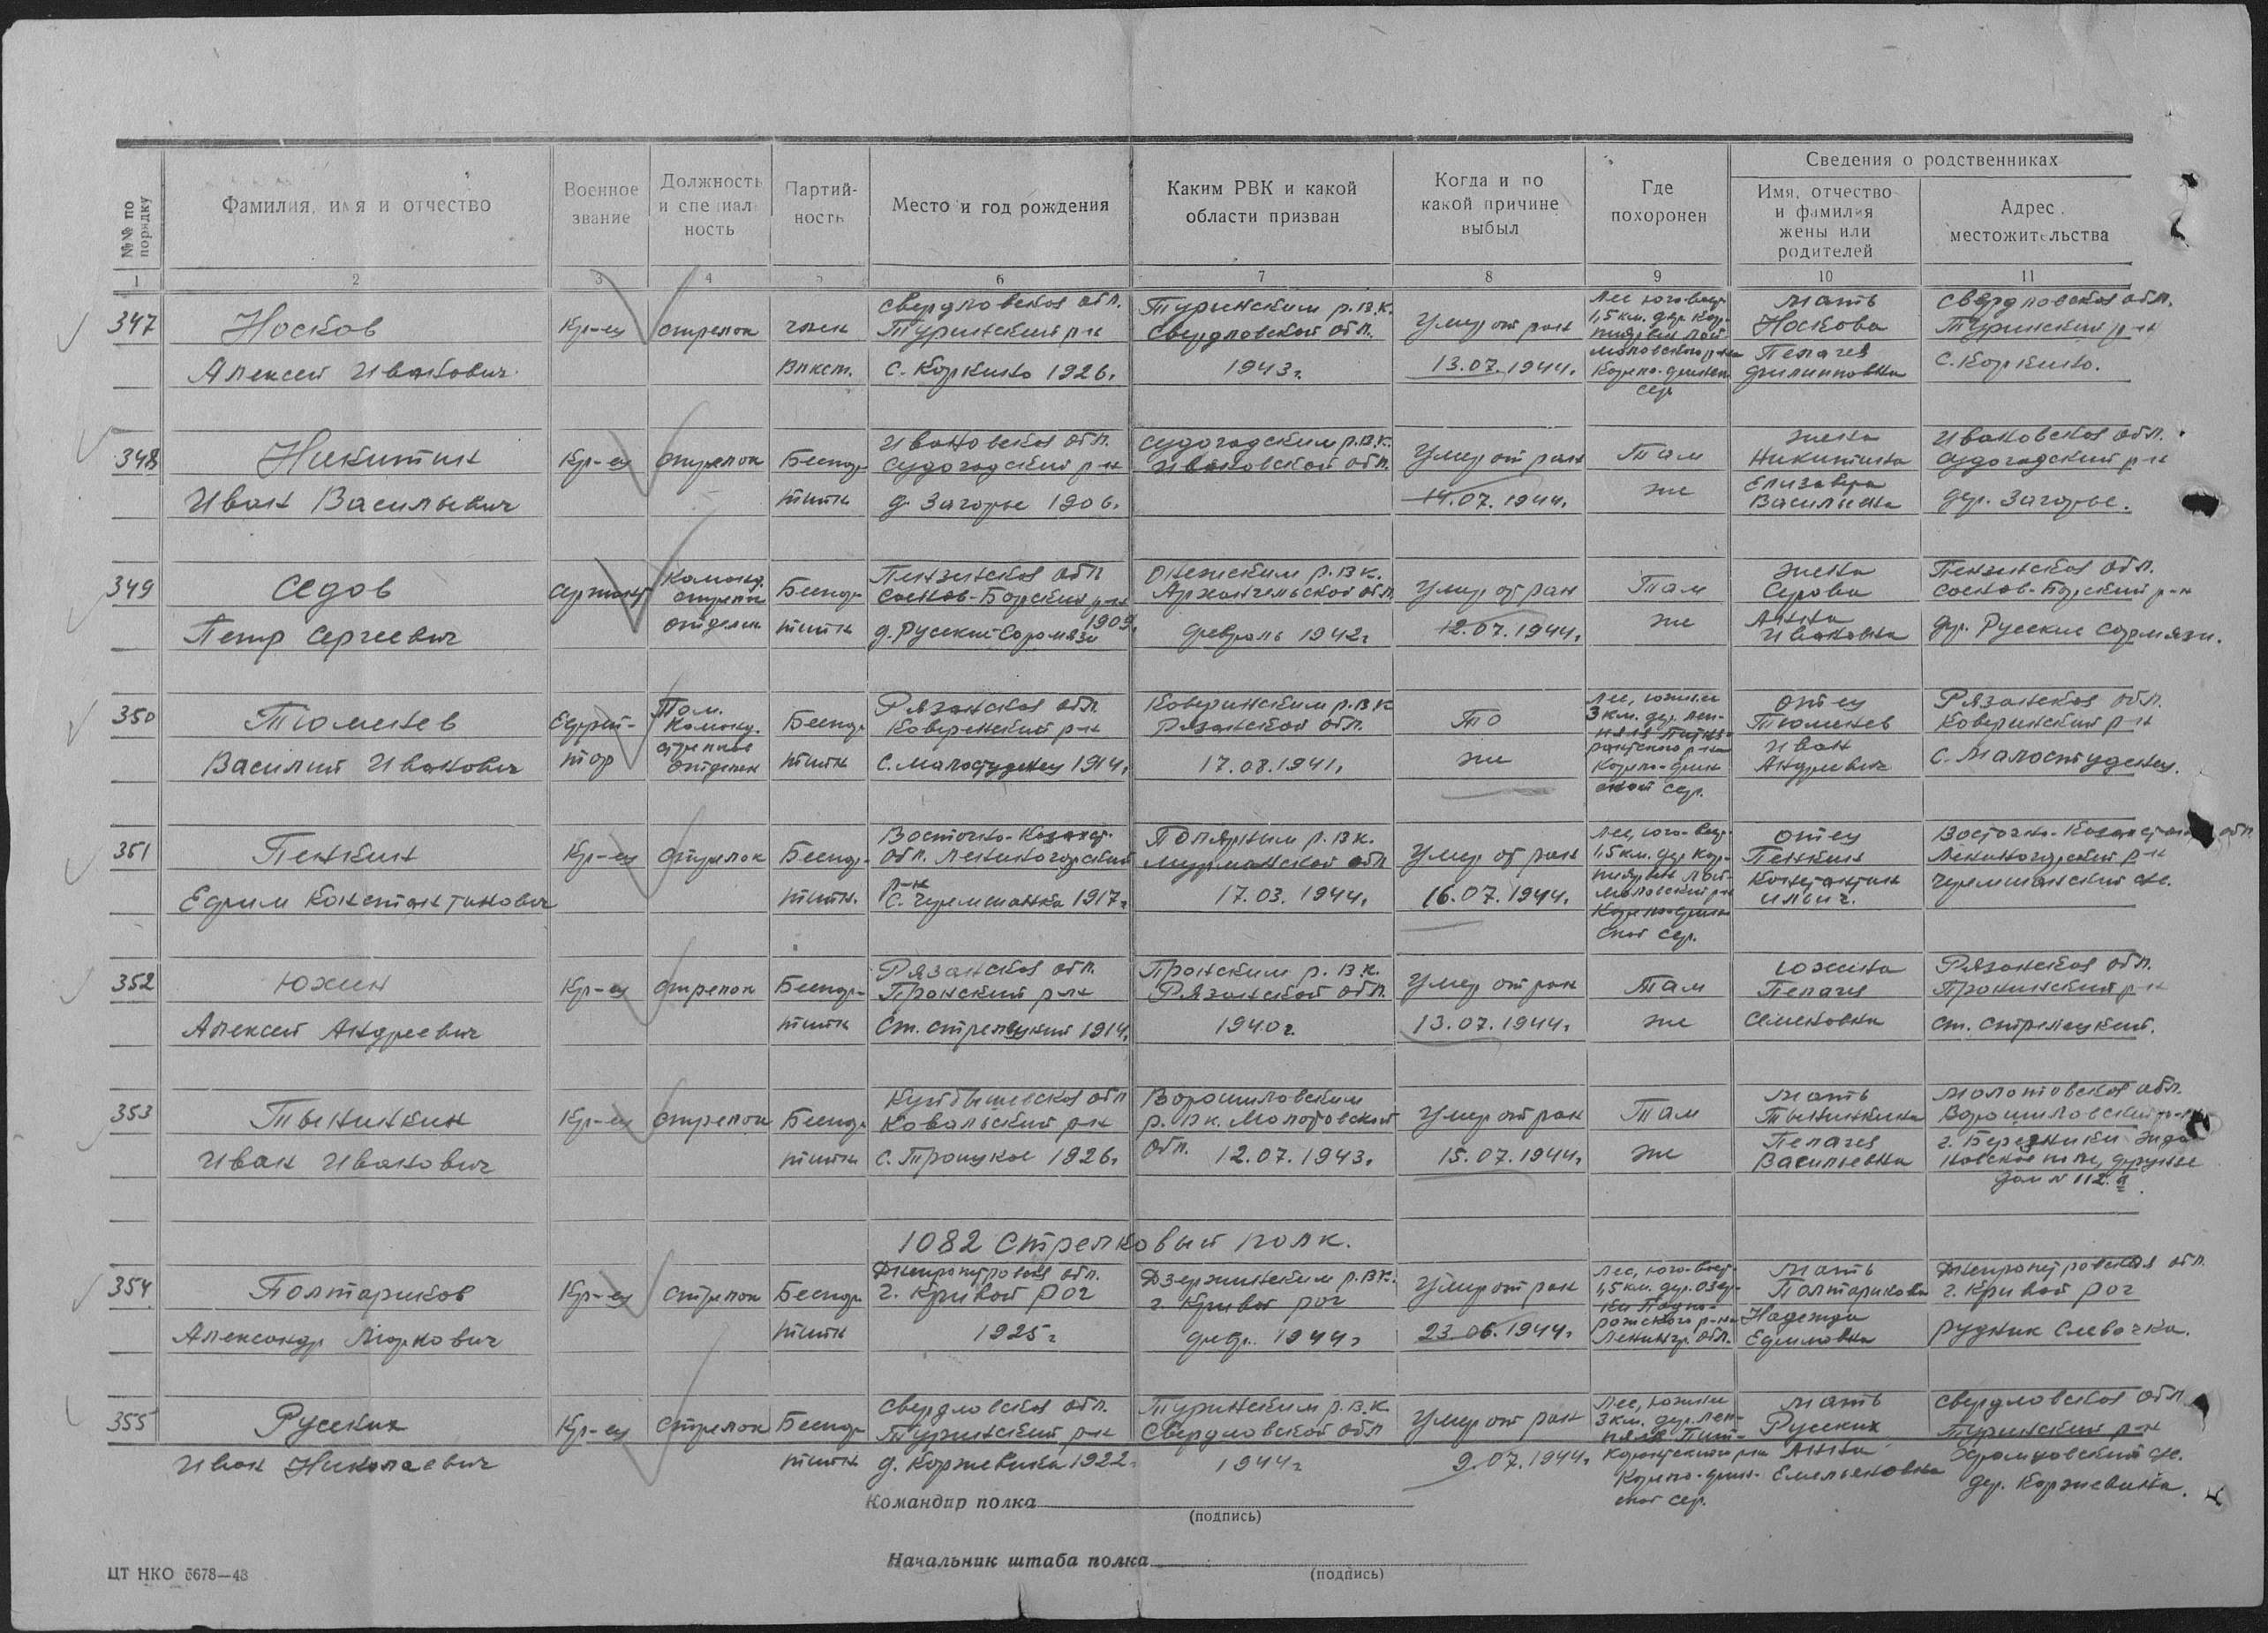 №№ по порядку
Фамилия, имя и отчество
Военное звание
Должность и специальность
Партийность
Место и год рождения
Каким РВК и какой области призван
Когда и по какой причине выбыл
Где похоронен
Сведения о родственниках
Имя, отчество и фамилия жены или родителей
Адрес местожительства
1 2 3 4 5 6 7 8 9 10 11
347
Носков
Алексей Иванович
Кр-ец
стрелок
член
ВЛКСМ.
Свердловская обл.
Туринский р-н
с. Коркино 1926.
Туринским р.в.к.
Свердловской обл.
1943г.
Умер от ран
13.07.1944.
Лес юго-вост
1,5 км. дер. Кор-
Карело-финск
сср
мать
Носкова
Пелагея
Филипповна
Свердловская обл.
Туринский р-н
с. Коркино.
348
Никитин
Иван Васильевич
Кр-ец
стрелок
Беспар-
тийн
Ивановская обл.
Судогодский р-н
д. Загорье 1906.
Судогодским р.в.к.
Ивановской обл.
Умер от ран
14.07.1944.
Там
же
жена
Никитина
Елизавета
Васильевна
Ивановская обл.
Судогодский р-н
дер. Загорье.
349
Седов
Петр Сергеевич
сержант
команд.
стрелк
отделен
Беспар-
тийн
Пензенская обл
Соснов-Борский р-н
1909.
Онежским р.в.к.
Архангельской обл.
февраль 1942г
Умер от ран
12.07.1944.
Там
же
жена
Седова
Анна
Ивановна
Пензенская обл.
Соснов-Борский р-н
дер. Русские
350
Тюменев
Василий Иванович
Ефрей-
тор
Пом.
команд.
стрелков
отделен
Беспар-
тийн
Рязанская обл
Каверинский р-н
с. Малостуденец 1914.
Каверинским р.в.к
Рязанской обл.
17.08.1941.
То
же
Лес, южнее
3 км. дер. Леп-
Карело-фин
ской сср.
отец
Тюменев
Иван
Андреевич
Рязанская обл.
Каверинский р-н
с. Малостуденец.
351
Пенкин
Ефим Константинович
Кр-ец
стрелок
Беспар-
тийн.
Восточно-Казахст.
обл. Лениногорский
р-н
с. Черемшанка 1917г
Полярным р.в.к.
Мурманской обл
17.03.1944.
Умер от ран
16.07.1944.
Лес, юго-вост.
1,5 км. дер Кор-
Карело-финс
ской сср.
отец
Пенкин
Константин
Ильич.
Восточно-Казахстан обл
Лениногорский р-н
Черемшанский с/с.
352
Южин
Алексей Андреевич
Кр-ец
стрелок
Беспар-
тийн
Рязанская обл.
Пронский р-н
ст. Стрелецкий 1914.
Пронским р.в.к.
Рязанской обл.
1940г
Умер от ран
13.07.1944.
Там
же
Южина
Пелагея
Семеновна
Рязанская обл.
р-н
ст. Стрелецкий.
353
Тынинкин
Иван Иванович
Кр-ец
стрелок
Беспар-
тийн
Куйбышевская обл
р-н
с. Троицкое 1926.
Ворошиловским
р.вк. Молотовской
обл. 12.07.1943.
Умер от ран
15.07.1944.
Там
же
мать
Тынинкина
Пелагея
Васильевна
Молотовская обл.
Ворошиловский р-н
г. Березники
дом № 112. а
1082 Стрелковый полк.
354
Полтариков
Александр Маркович
Кр-ец
стрелок
Беспар-
тийн
Днепропетровская обл.
г. Кривой Рог
1925г
Дзержинским р.вк.
г. Кривой рог
февр. 1944г
Умер от ран
23.06.1944.
Лес, юго-вост.
1,5 км. дер. Озер-
ки Подпо-
рожского р-на
Ленингр. обл.
мать
Полтарикова
Надежда
Ефимовна
Днепропетровская обл
г. Кривой Рог
рудник
355
Русских
Иван Николаевич
Кр-ец
стрелок
Беспар-
тийн
Свердловская обл.
Туринский р-н
д. Коржевина 1922г
Туринским р.в.к.
Свердловской обл
1944г
Умер от ран
9.07.1944.
Лес, южнее
3 км. дер. Леп-
Карело-финс-
ской сср.
мать
Русских
Анна
Емельяновна
Свердловская обл
Туринский р-н
дер. Коржевина.
Командир полка
(подпись)
Начальник штаба полка
(подпись)
ЦТ НКО 5678—43